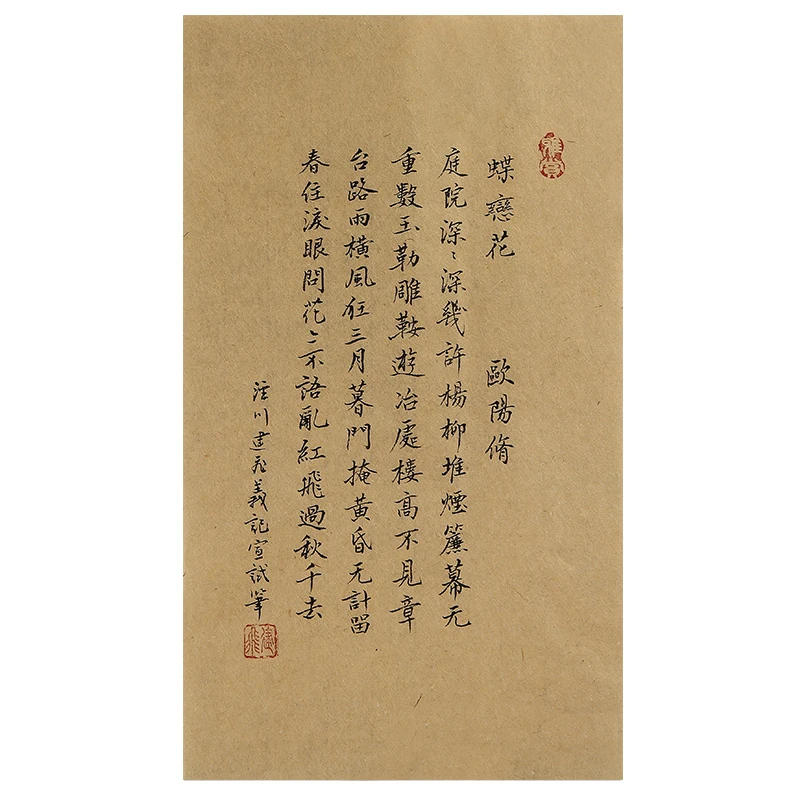 蝶戀花 歐陽脩
庭院深〻深幾許楊柳堆煙簾幕无
重數玉勒雕鞍遊冶處樓高不見章
台路雨橫風狂三月暮門掩黃昏无計留
春住淚眼問花〻不語亂紅飛過秋千去
涇川建飛義記宣試筆
建飛